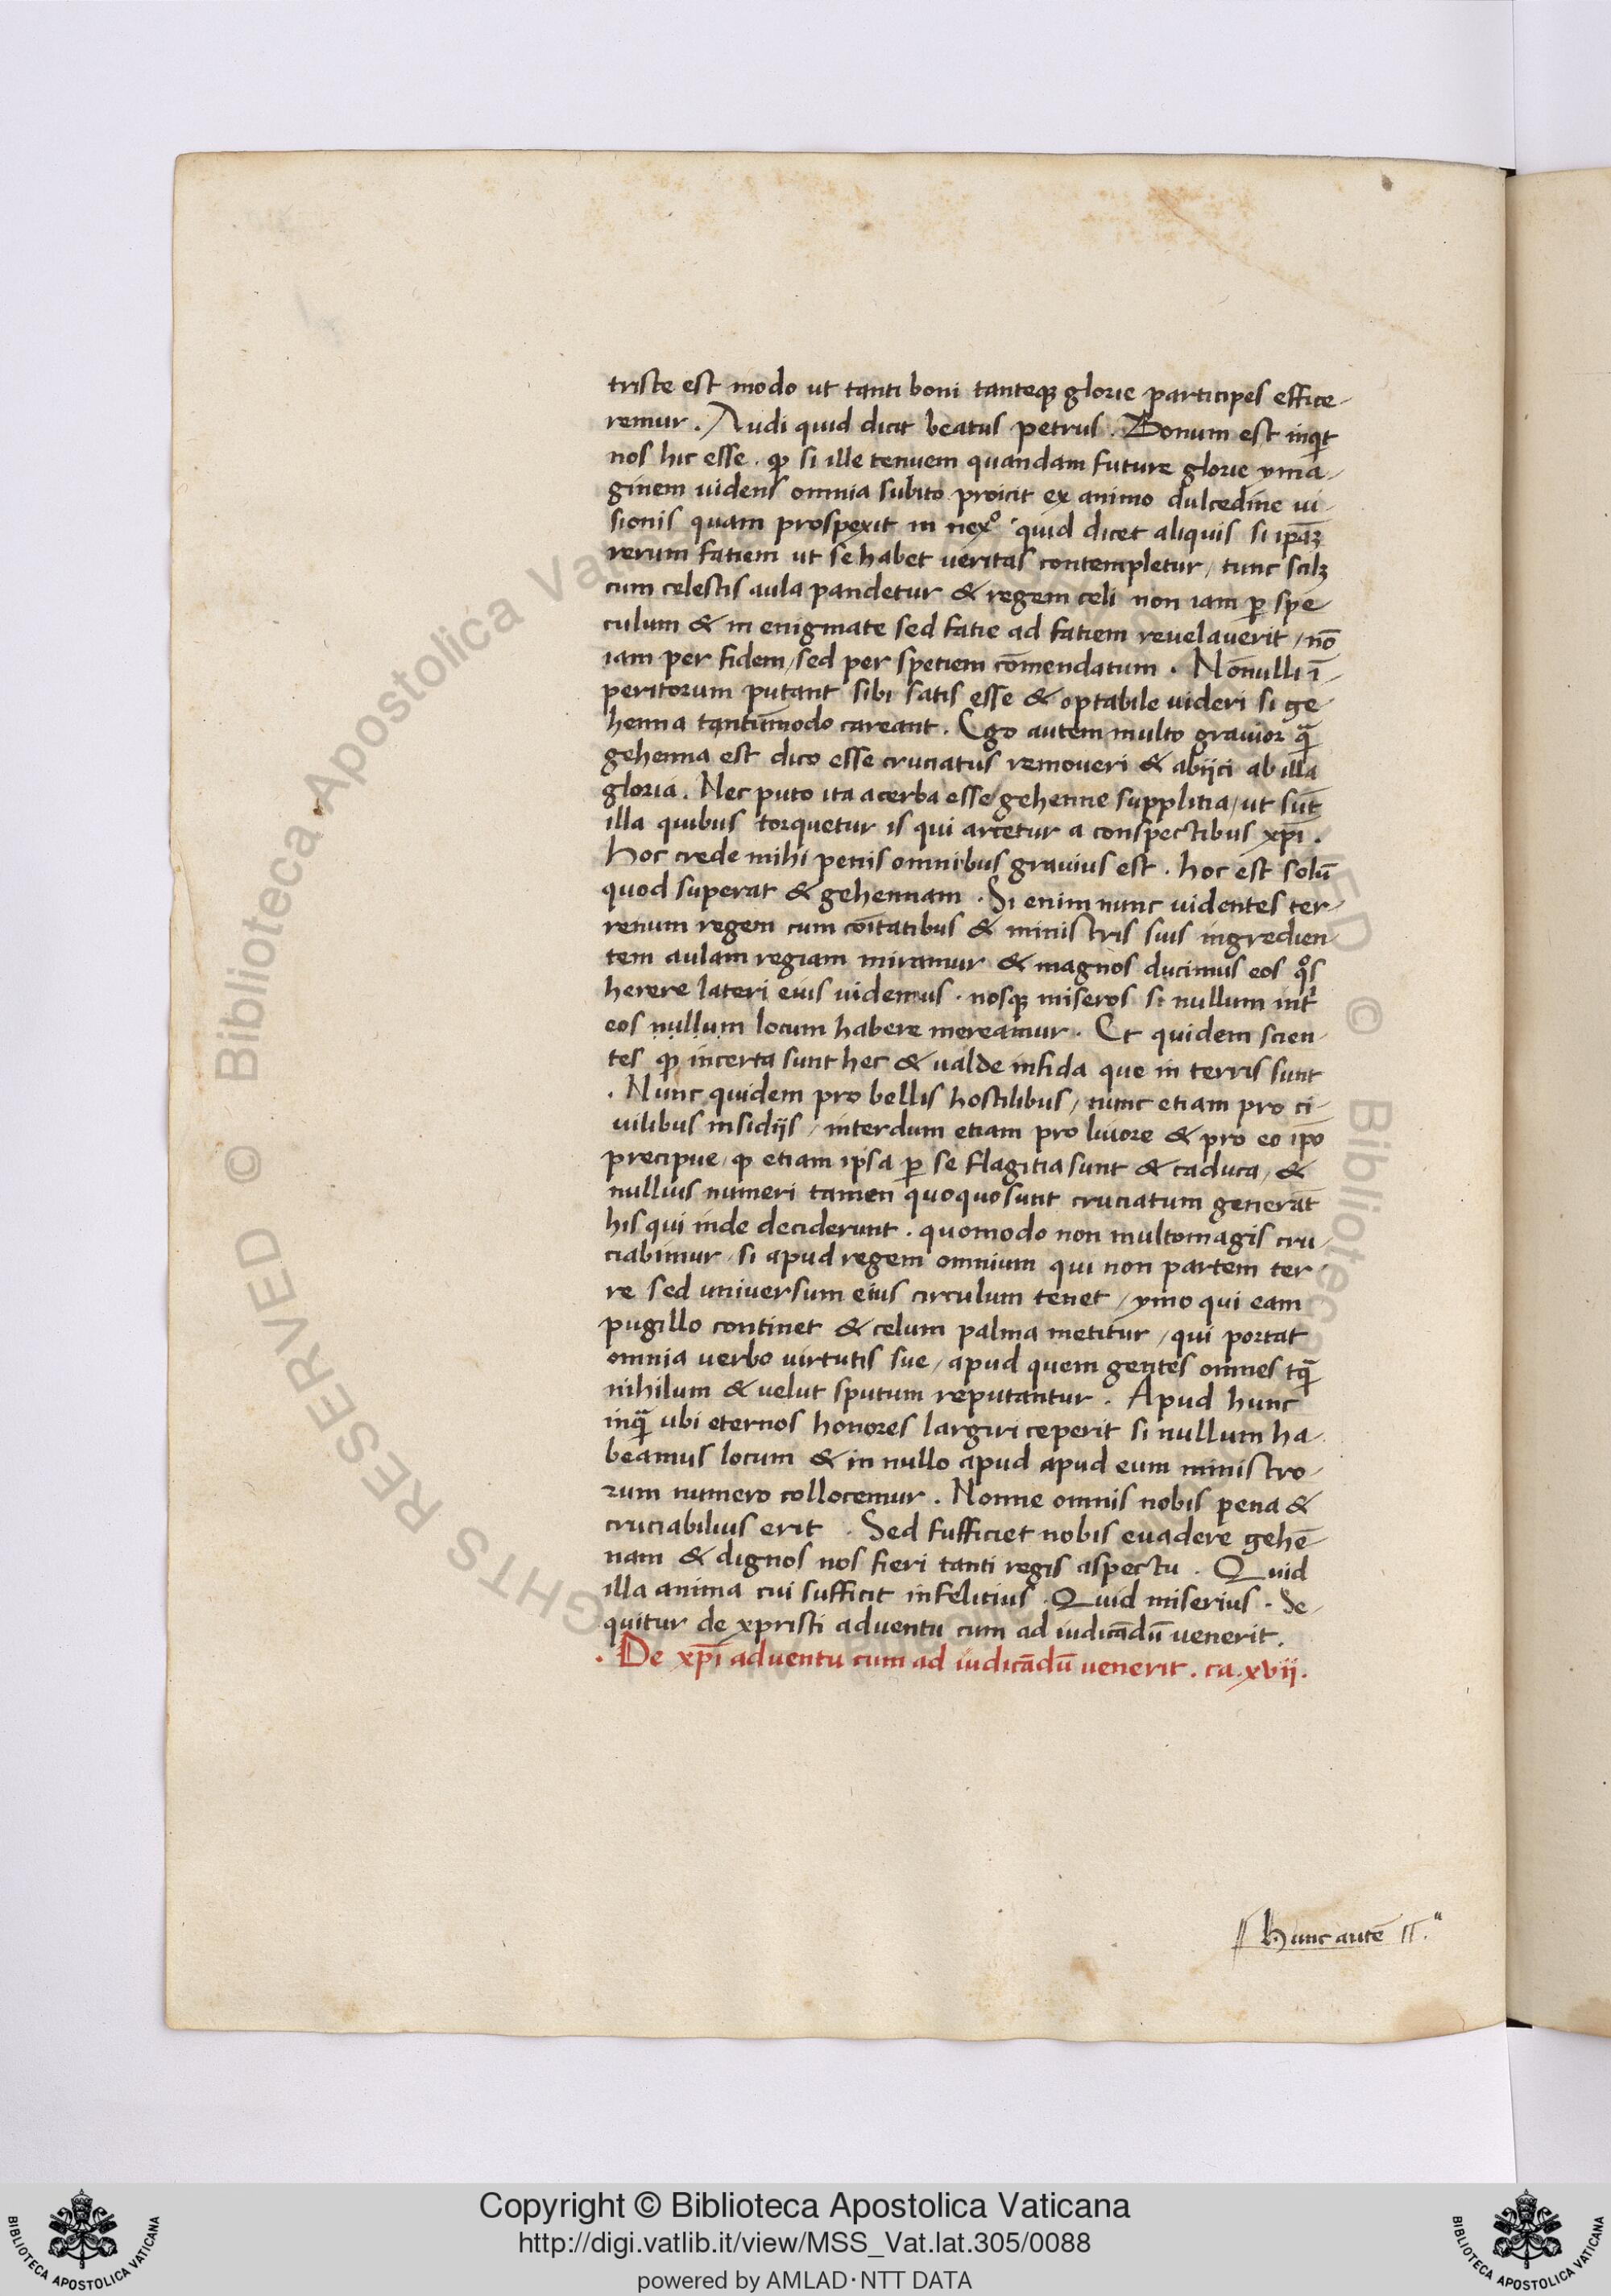 triste est modo ut tanti boni tanteq; glorie participes effice-
remur. Audi quid dicit beatus petrus. Bonum est inqt
nos hic esse. ꝙ si ille tenuem quandam future glorie yma-
ginem uidens omnia subito proicit ex animo dulcedine ui-
sionis quam prospexit in nexº quid dicet aliquis si ip̄aꝫ
rerum fatiem ut se habet veritas contempletur / tunc scilꝫ
cum celestis aula pandetur & regem celi non iam ꝑ spe-
culum & in enigmate sed fatie ad fatiem reuelauerit / nō
iam per fidem / sed per spetiem cōmendatum. Nōnulli ī-
peritorum putant sibi satis esse & optabile uideri si ge-
henna tantūmodo careant. Ego autem multo grauior qͣ̄
gehenna est dico esse cruciatus remoueri & abijci ab illa
gloria. Nec puto ita acerba esse gehenne supplitia / ut sūt
illa quibus torquetur is qui arcetur a conspectibus xp̄i.
Hoc crede mihi penis omnibus grauius est. hoc est solū
quod superat & gehennam. Si enim nunc uidentes ter-
renum regem cum cōitatibus & ministris suis ingredien-
tem aulam regiam miramur & magnos ducimus eos qͦs
herere lateri eius uidemus. nosq; miseros si nullum int̄
eos nullum locum habere mereamur. Et quidem scien-
tes ꝙ incerta sunt hec & ualde infida que in terris sunt
. Nunc quidem pro bellis hostilibus / nunc etiam pro ci-
uilibus insidijs / interdum etiam pro liuore & pro eo ip̄o
precipue / ꝙ etiam ipsa ꝑ se flagitia sunt & caduca / &
nullius numeri tamen quoquo sunt cruciatum generāt
his qui inde deciderunt. quomodo non multomagis cru-
ciabimur / si apud regem omnium qui non partem ter-
re sed universum eius circulum tenet / ymo qui eam
pugillo continet & celum palma metitur / qui portat
omnia uerbo uirtutis sue / apud quem gentes omnes tqͣ̄
nihilum & uelut sputum reputantur. Apud hunc
inqͣ̄ ubi eternos honores largiri ceperit si nullum ha-
beamus locum & in nullo apud apud eum ministro-
rum numero collocemur. Nonne omnis nobis pena &
cruciabilius erit. Sed sufficiet nobis euadere gehē-
nam & dignos nos fieri tanti regis aspectu. Quid
illa anima cui sufficit infelitius. Quid miserius. Se-
quitur de xpristi adventu cum ad iudicādū uenerit.
. De xp̄i adventu cum ad iudicādū uenerit. ca. xvii.
Hunc autē
Copyright © Biblioteca Apostolica Vaticana
http://digi.vatlib.it/view/MSS_Vat.lat.305/0088
powered by AMLAD·NTT DATA